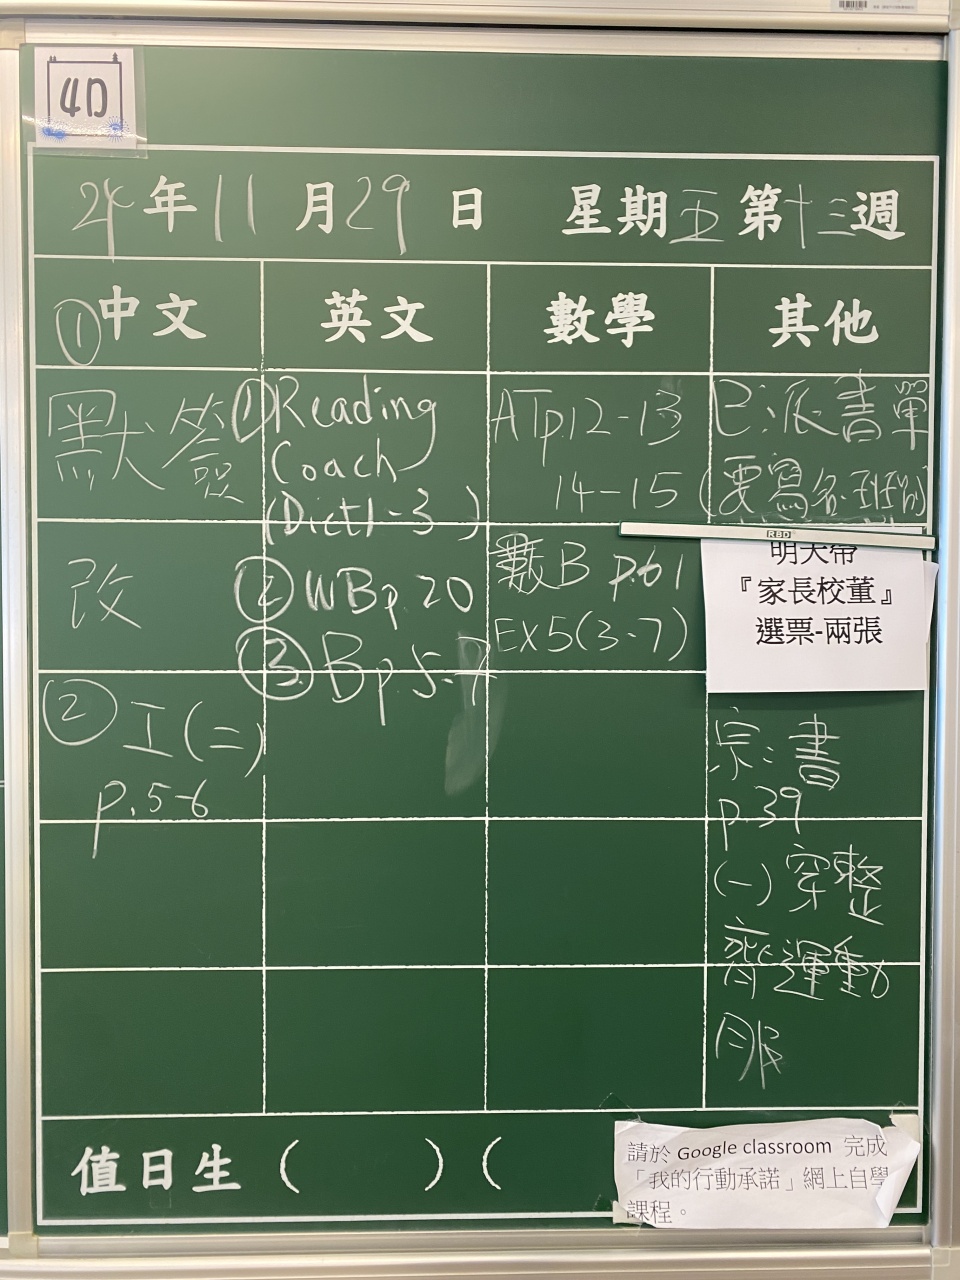 4D
24年11月29日 星期五第十三週
①中文
英文
數學
其他
默簽
改
②工(二)
p.5-6
①Reading
Coach
(Dict1-3)
②WBp20
③Bp.5-7
ATp12-13
14-15
數B p.61
EX5(3-7)
已派書單
(要寫名.班別)
RBD
明天帶
『家長校董』
選票-兩張
宗:書
p.39
(一)穿整
齊運動
服
值日生( )(
請於 Google classroom 完成
「我的行動承諾」網上自學
課程。